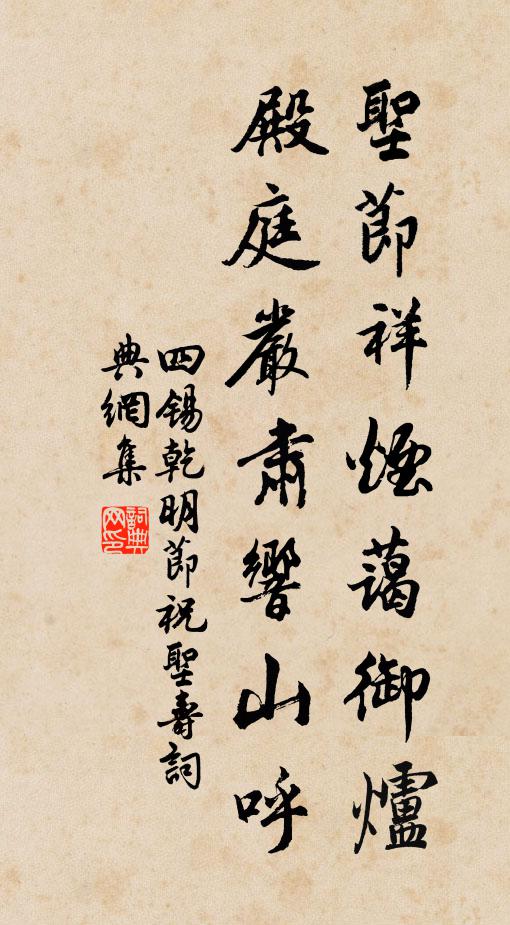 聖節祥煙藹御爐
殿庭嚴肅響山呼
四錫乾明節祝聖壽詞
典網集
詞典網印